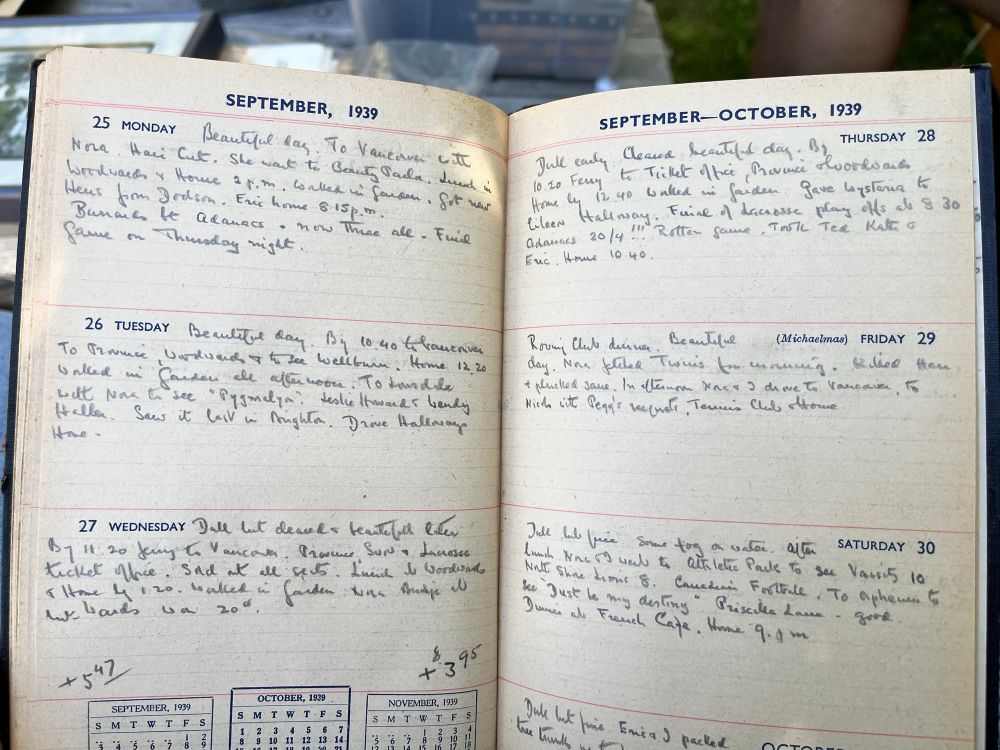 SEPTEMBER, 1939
25 MONDAY Beautiful day. To Vancouver with
Nora. Hair Cut. She went to Beauty Parlor. Lunch in
Woodwards & Home 2 p.m. Worked in garden. Got new
Hens from Dodson. Eric home 8.15 p.m.
Burrards bt Adanacs - now three all - Final
game on Thursday night.
26 TUESDAY Beautiful day. By 10.40 to Vancouver
To Province, Woodwards & to see Wellburn. Home 12.20
Worked in Garden all afternoon. To
with Nora to see "Pygmalion". Leslie Howard & Wendy
Hiller. Saw it last in Brighton. Drove Halloways
Home -
27 WEDNESDAY Dull but cleared & beautiful later
By 11.20 ferry to Vancouver. Province, Sun & Lacrosse
ticket office. Sold out all seats. Lunch to Woodwards
& Home by 1.20. Worked in Garden. Nora Bridge at
Wards won 20
+ 5 47
$ + 3 95
SEPTEMBER, 1939
S M T W T F S
1 2
3 4 5 6 7 8 9
OCTOBER, 1939
S M T W T F S
1 2 3 4 5 6 7
8 9 10 11 12 13 14
NOVEMBER, 1939
S M T W T F S
1 2 3 4
5 6 7 8 9 10 11
SEPTEMBER—OCTOBER, 1939
THURSDAY 28
Dull early. Cleared beautiful day. By
10.20 Ferry to Ticket office, Province & Woodwards
Home by 12.40 Worked in garden. Gave Wysteria to
Eileen Halloway. Final of Lacrosse play offs at 8.30
Adanacs 20/4 !!! Rotten game. Took Ted Kate &
Eric. Home 10.40.
(Michaelmas) FRIDAY 29
Rowing Club dinner. Beautiful
day. Nora fetched Twins for morning. Killed Hen
& plucked same. In afternoon Nora & I drove to Vancouver, to
with Pegg's racquets, Tennis Club & Home
SATURDAY 30
Dull but fine. Some fog on water. After
Lunch Nora & I went to Athletic Park to see Varsity 10
North Shore Lions 8. Canadian Football. To Orpheum to
see "Dust be my destiny" Priscilla Lane - good
Dinner at French Cafe. Home 9. p m
Dull but fine Eric & I packed
tree trunks
OCTOBER